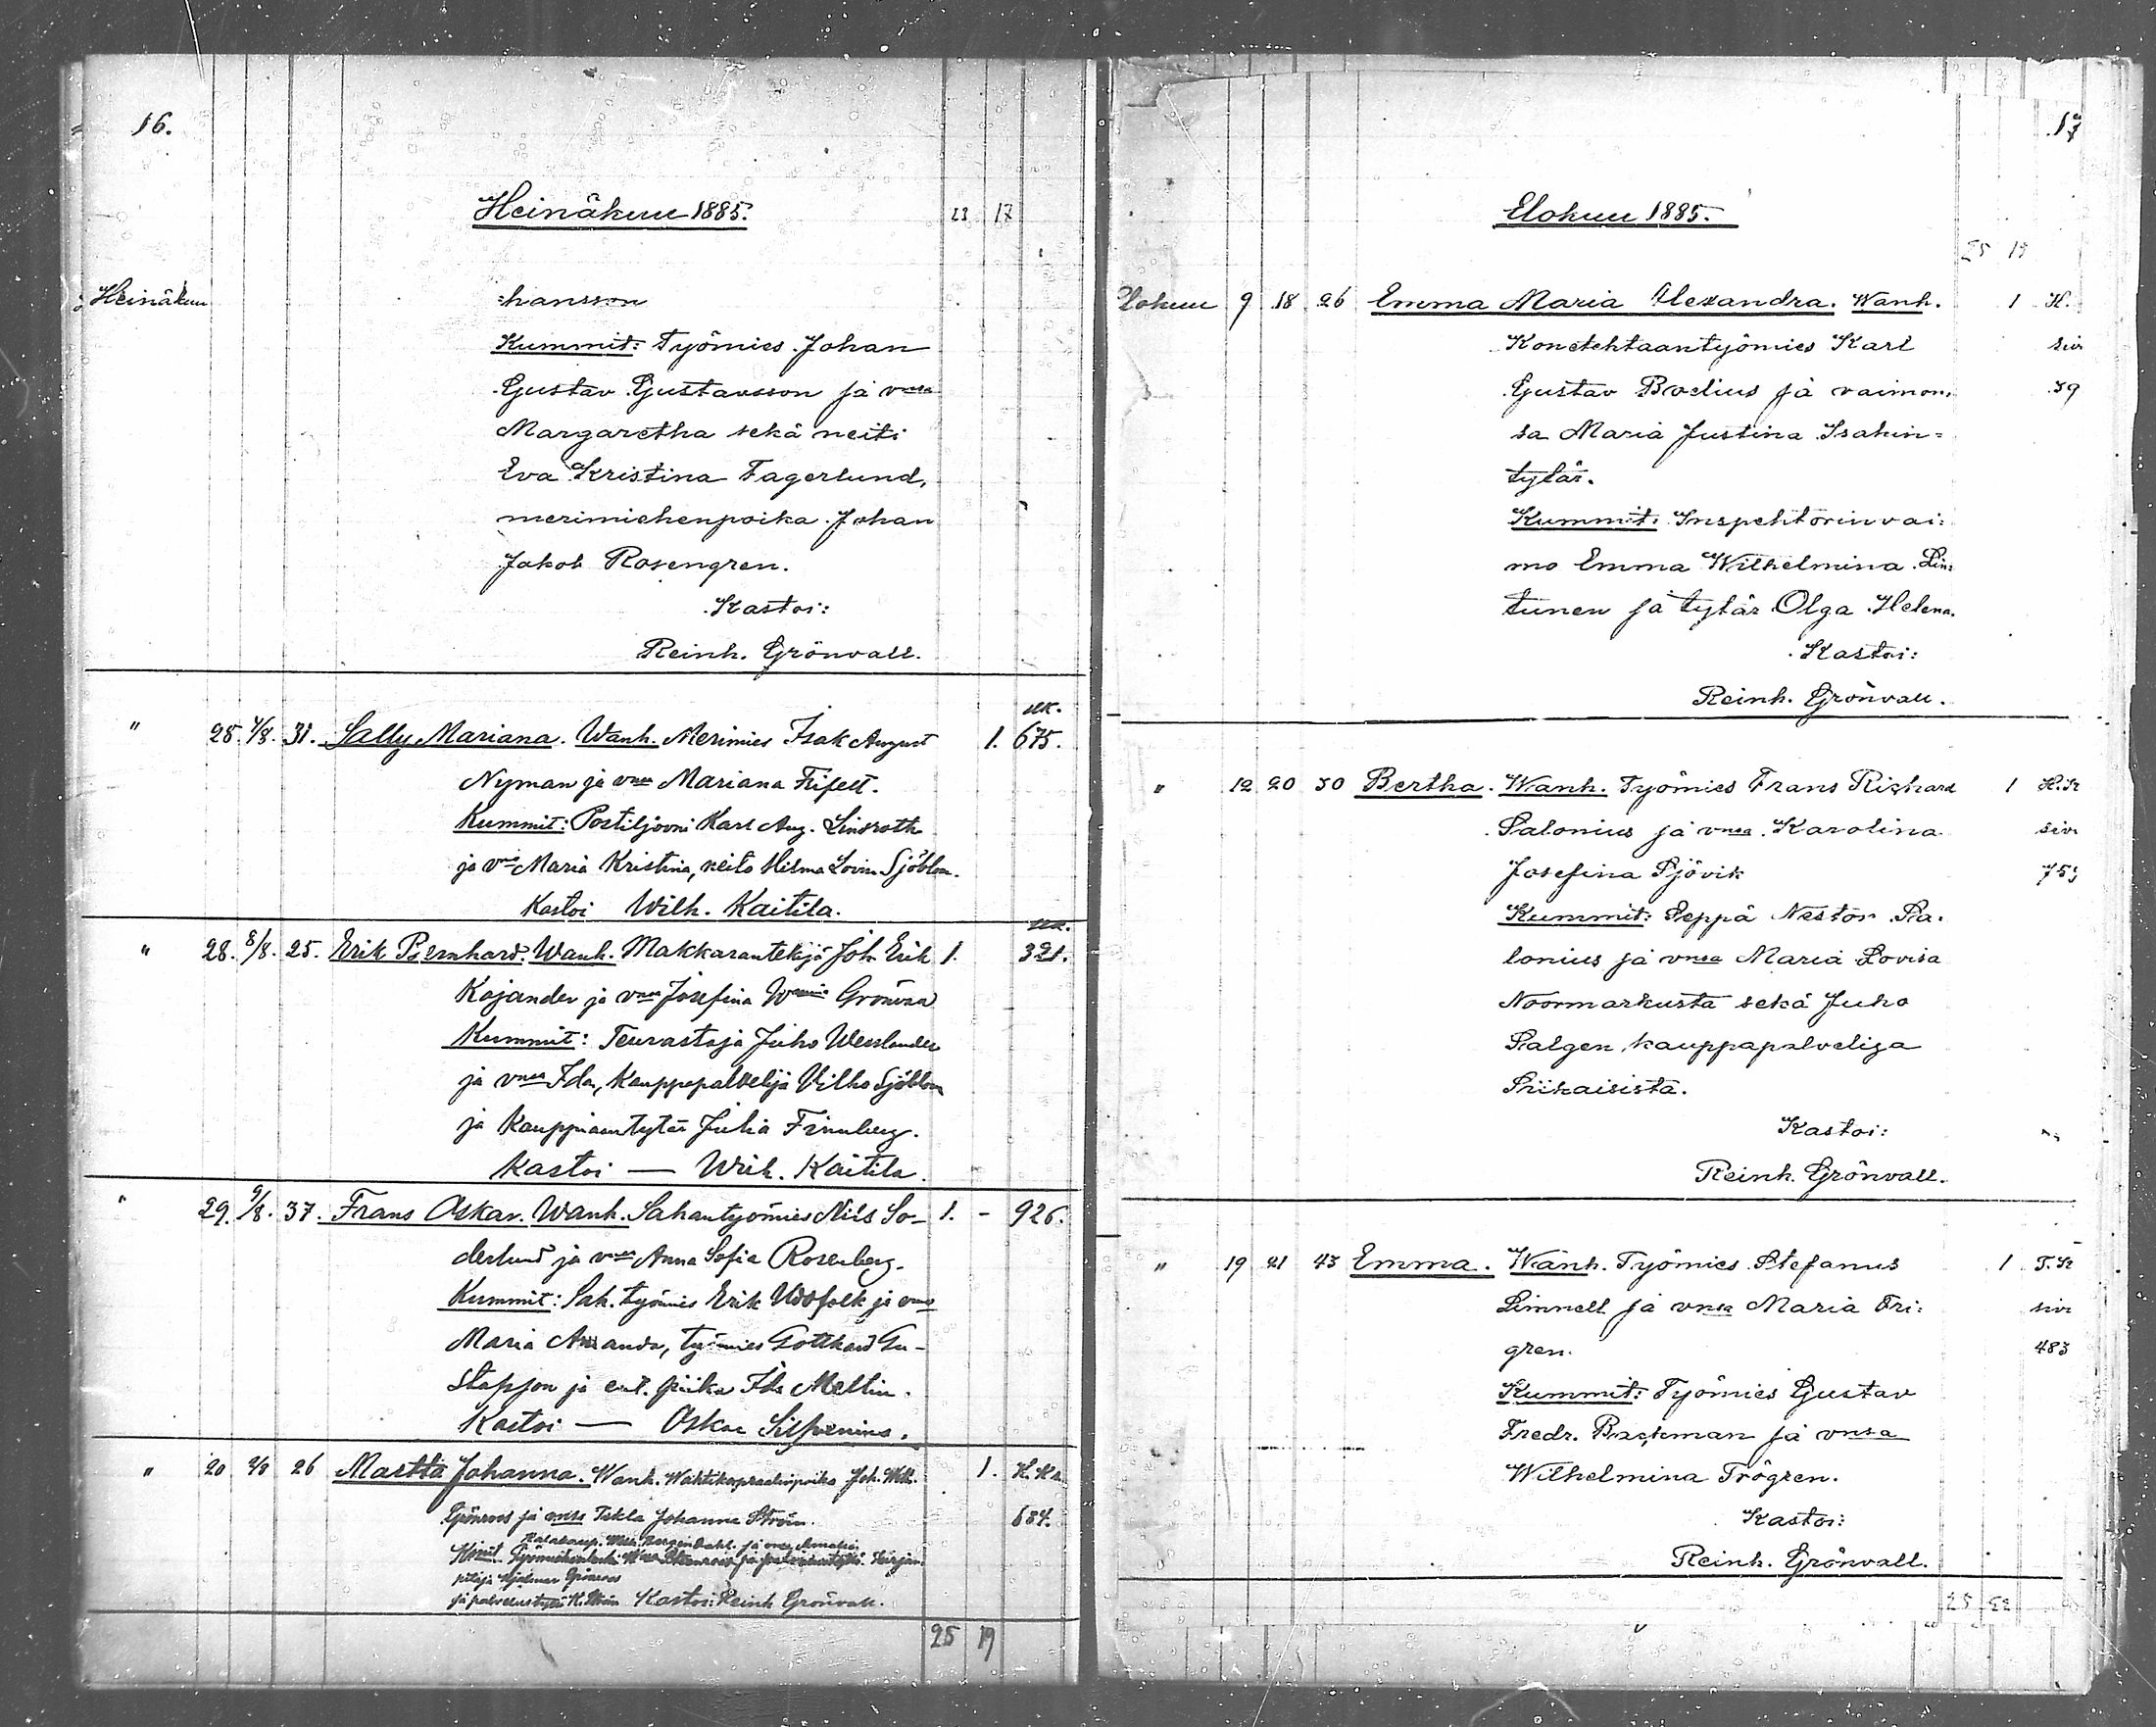 16.
Heinäkuu 1885.
23 17
Heinäkuu
:hansson
Kummit: Työmies Johan
Gustav Gustavsson ja vnsa
Margaretha sekä neiti
Eva Kristina Fagerlund,
merimiehenpoika Johan
Jakob Rosengren.
Kastoi:
Reinh. Grönvall.
" 25. 4/8. 31. Sally Mariana. Wanh. Merimies Isak August 1. 675.
Nyman ja vnsa Mariana Frifelt.
Kummit: Postiljooni Karl Aug. Lindroth
ja vns Maria Kristina, neito Hilma Lovisa Sjöblom.
Kastoi Wilh. Kaitila.
" 28. 8/8. 25. Erik Bernhard. Wanh. Makkarantekijä Joh. Erik 1. 321.
Kajander ja vnsa Josefina Grönroos
Kummit: Teurastaja Juho Wesslander
ja vnsa Ida, Kauppapalvelija Vilho Sjöblom
ja Kauppiaantytär Julia Finnberg.
Kastoi — Wilh. Kaitila.
" 29. 9/8. 37. Frans Oskar. Wanh. Sahantyömies Nils So- 1. - 926.
derlund ja vnsa Anna Sofia Rosenberg.
Kummit: Sah. työmies Erik ja vmo
Maria Amanda, työmies Gotthard Gu-
stafson ja ent. piika Ida Mellin.
Kastoi — Oskar Silfvenius.
" 20 26 Martta Johanna. Wanh. Wahtikapraalinpoika Joh. Wilh. 1. K. Ka.
Grönroos ja vnsa Tekla Johanna Ström. 684.
ja vnsa Amalia
pitäjä Hjalmar Grönroos
ja palvelustyttö H. Ström Kastoi: Reinh. Grönvall.
25 19
17
Elokuu 1885.
25 19
Elokuu 9 18 26 Emma Maria Alexandra. Wanh. 1 K.
Konetehtaantyömies Karl siv
Gustav Boelius ja vaimon: 39
sa Maria Justina Isakin=
tytär.
Kummit: Inspehtörinvai:
mo Emma Wilhelmina Lin:
tunen ja tytär Olga Helena.
Kastoi:
Reinh. Grönvall.
" 12 20 30 Bertha. Wanh. Työmies Frans Richard 1 K.K
Salonius ja vnsa Karolina siv.
Josefina Sjövik 753
Kummit: Seppä Nestor Sa:
lonius ja vnsa Maria Lovisa
Noormarkusta sekä Juho
Salgen, kauppapalvelija
Siikaisista.
Kastoi:
Reinh. Grönvall.
" 19 21 43 Emma. Wanh. Työmies Stefanus 1 T.K
Linnell ja vnsa Maria Fri: siv
gren. 483
Kummit: Työmies Gustav
Fredr. Backman ja vnsa
Wilhelmina Trögren.
Kastoi:
Reinh. Grönvall.
25 22